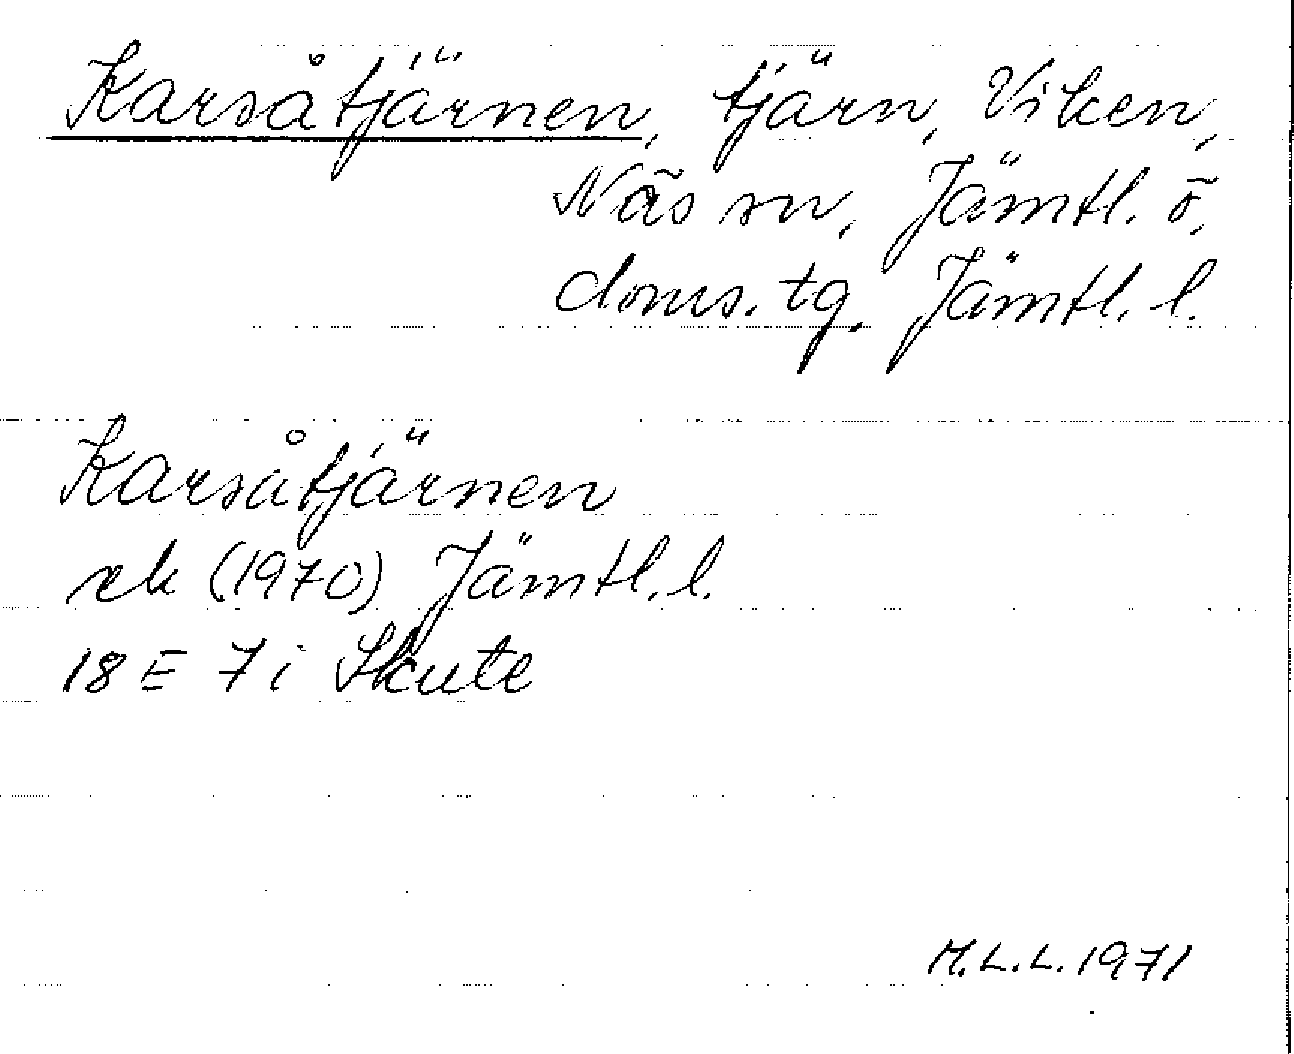 Karsåtjärnen, tjärn, Viken,
Näs sn, Jämtl. ö.
doms. tg. Jämtl. l.
Karsåtjärnen
ek (1970) Jämtl. l.
18 E 7 i Skute
M.L.L. 1971